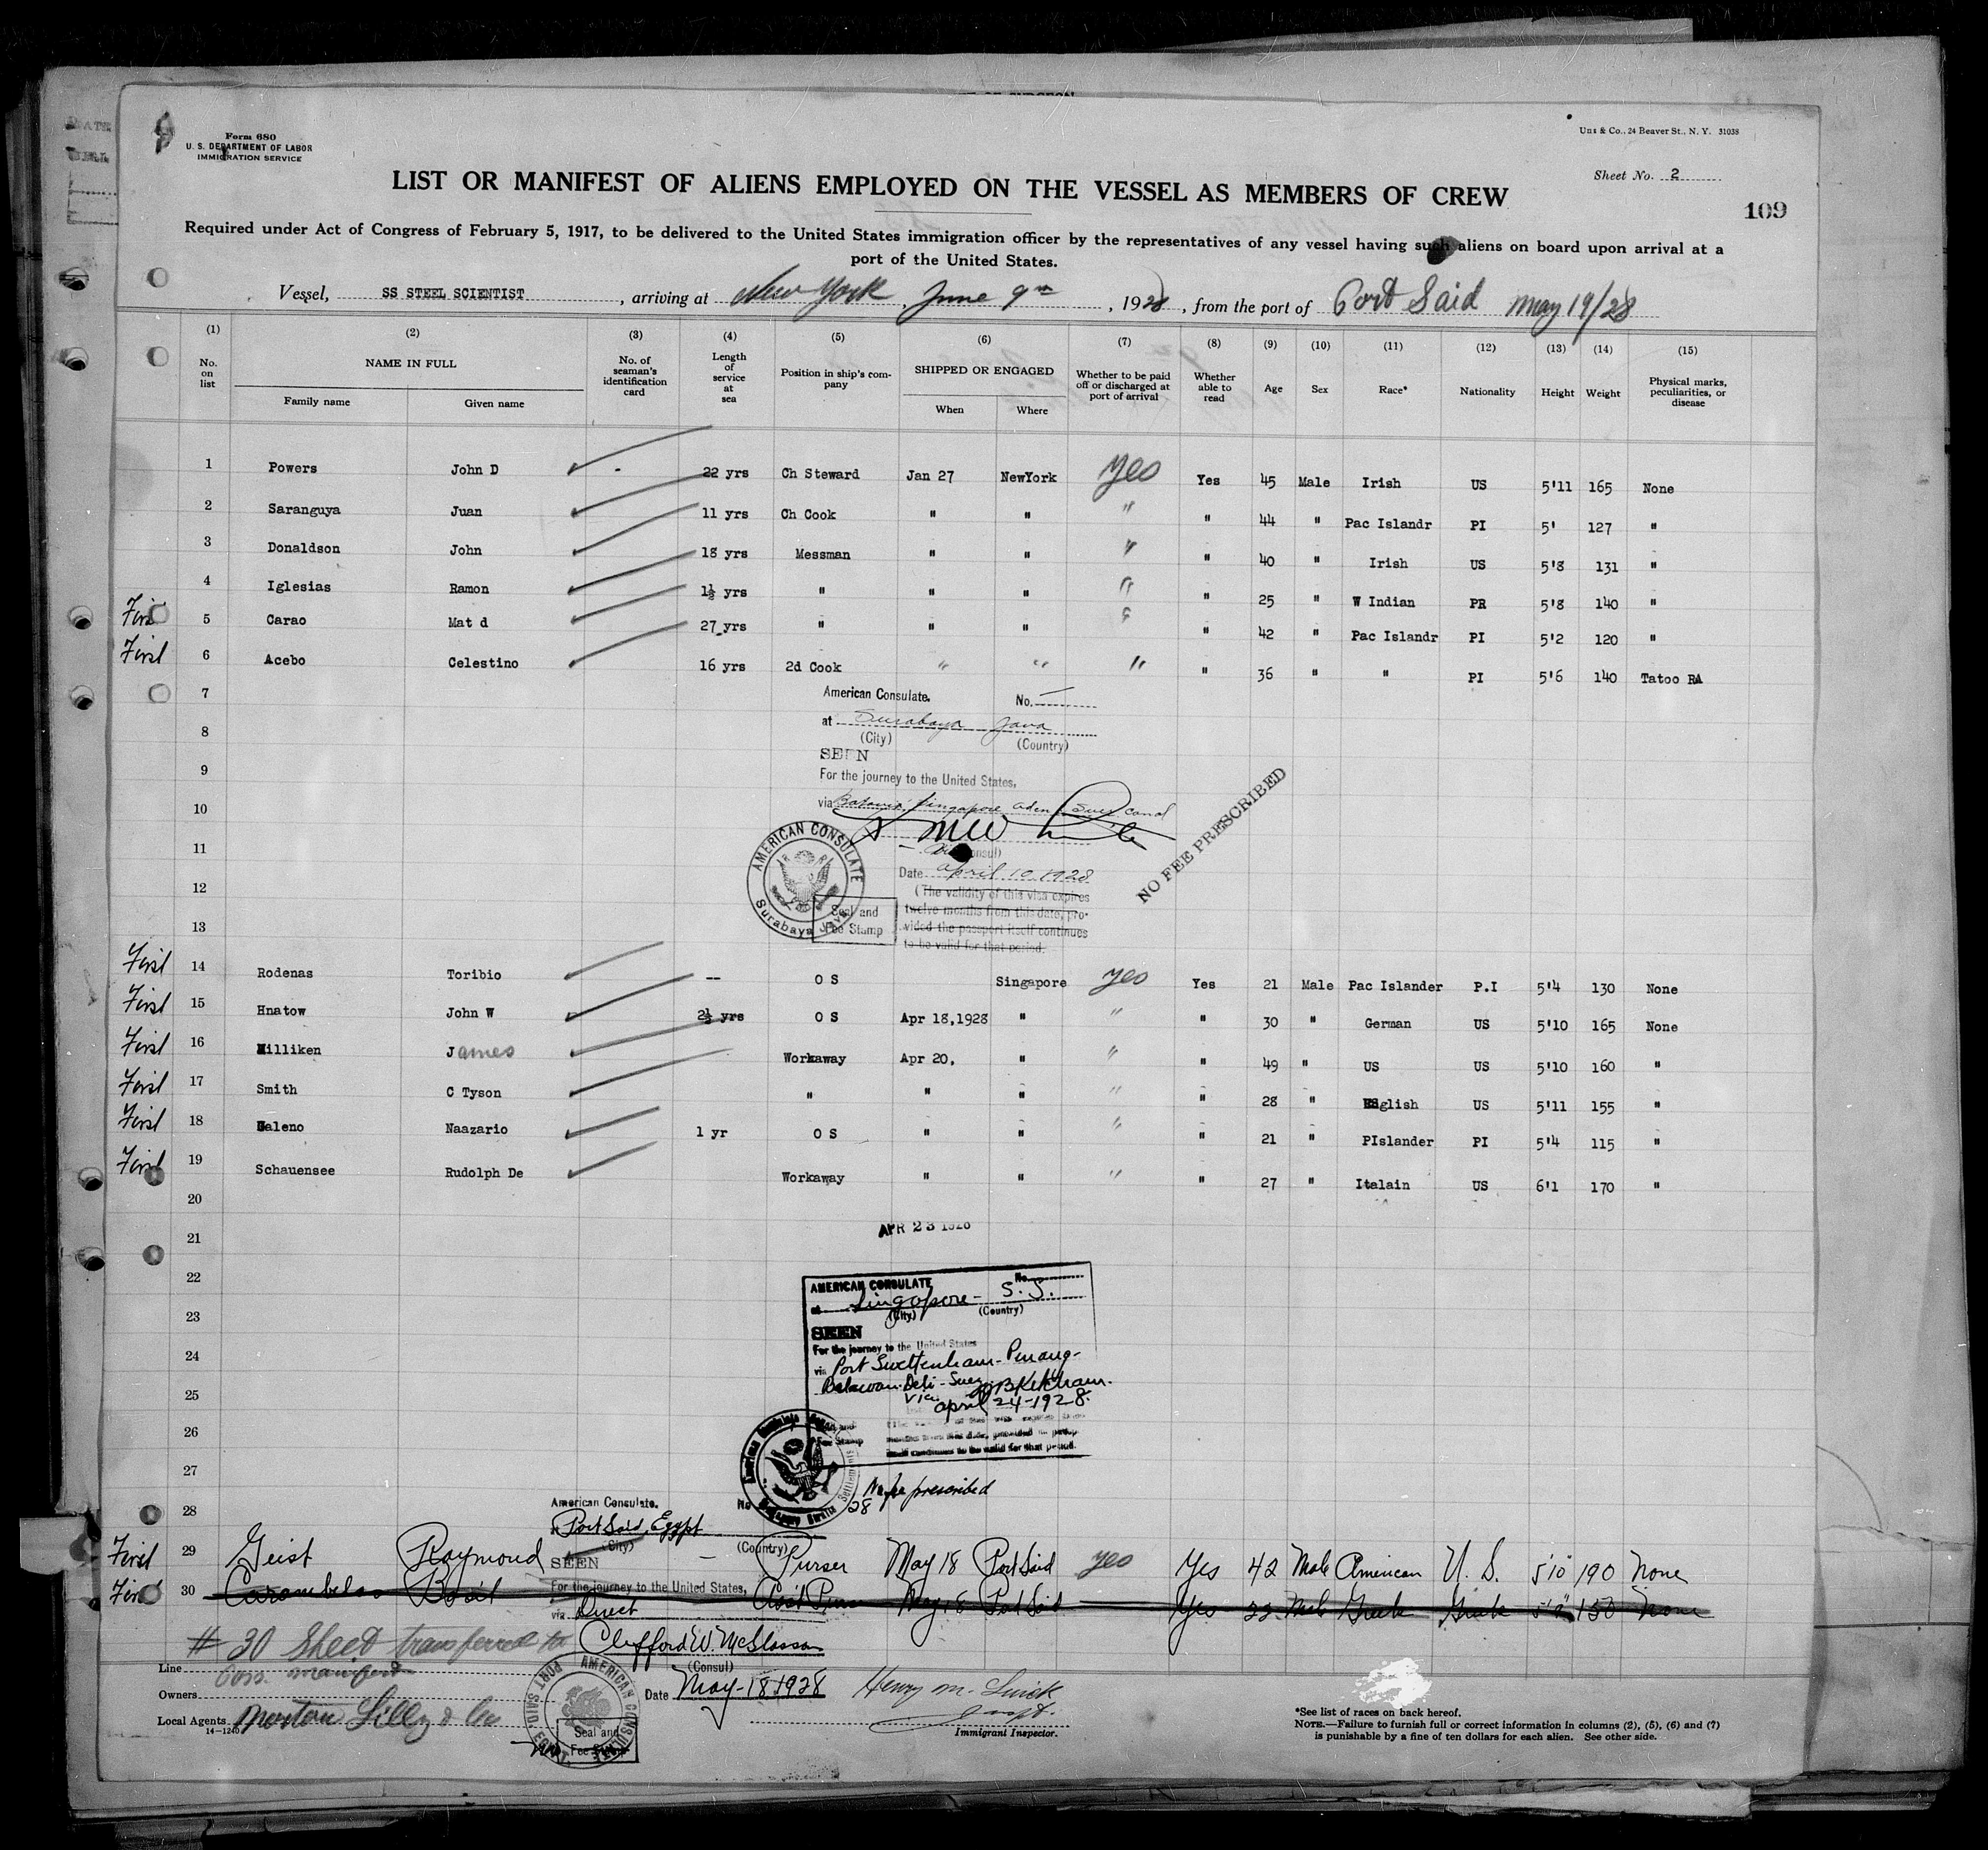 Form 680
U. S. DEPARTMENT OF LABOR
IMMIGRATION SERVICE
Uns & Co., 24 Beaver St., N. Y. 31038
Sheet No. 2
109
LIST OR MANIFEST OF ALIENS EMPLOYED ON THE VESSEL AS MEMBERS OF CREW
Required under Act of Congress of February 5, 1917, to be delivered to the United States immigration officer by the representatives of any vessel having such aliens on board upon arrival at a
port of the United States.
Vessel, SS STEEL SCIENTIST, arriving at New York, June 9th, 1928, from the port of Port Said May 19/28
(1) (2) (3) (4) (5) (6) (7) (8) (9) (10) (11) (12) (13) (14) (15)
No. on list NAME IN FULL Family name Given name No. of seaman's identification card Length of service at sea Position in ship's company SHIPPED OR ENGAGED When Where Whether to be paid off or discharged at port of arrival Whether able to read Age Sex Race* Nationality Height Weight Physical marks, peculiarities, or disease
1 Powers John D - 22 yrs Ch Steward Jan 27 NewYork yes Yes 45 Male Irish US 5'11 165 None
2 Saranguya Juan 11 yrs Ch Cook " " " " 44 " Pac Islandr PI 5' 127 "
3 Donaldson John 18 yrs Messman " " " " 40 " Irish US 5'8 131 "
4 Iglesias Ramon 1½ yrs " " " " " 25 " W Indian PR 5'8 140 "
First 5 Carao Mat d 27 yrs " " " " " 42 " Pac Islandr PI 5'2 120 "
First 6 Acebo Celestino 16 yrs 2d Cook " " " " 36 " " PI 5'6 140 Tatoo RA
7
American Consulate. No.
8
at Surabaya Java
(City) (Country)
SEEN
9
For the journey to the United States,
10
via Batavia Singapore Aden Suez Canal
11
(Consul)
12
Date April 10 1928
(The validity of this visa expires
twelve months from this date, pro-
vided the passport itself continues
to be valid for that period.
13
AMERICAN CONSULATE
Surabaya Java
Seal and
Fee Stamp
NO FEE PRESCRIBED
First 14 Rodenas Toribio -- O S Singapore yes Yes 21 Male Pac Islander P.I 5'4 130 None
First 15 Hnatow John W 2½ yrs O S Apr 18,1928 " " " 30 " German US 5'10 165 None
First 16 Milliken James Workaway Apr 20, " " " 49 " US US 5'10 160 "
First 17 Smith C Tyson " " " " " 28 " English US 5'11 155 "
First 18 Galeno Naazario 1 yr O S " " " " 21 " PIslander PI 5'4 115 "
First 19 Schauensee Rudolph De Workaway " " " " 27 " Italain US 6'1 170 "
20
21
APR 23 1928
22
AMERICAN CONSULATE No.
at Singapore - S.S.
23
(City) (Country)
SEEN
24
For the journey to the United States
via Port Swettenham - Penang -
25
Belawan Deli - Suez
April 24-1928.
26
27
No fee prescribed
28
American Consulate.
Port Said, Egypt
(City) (Country)
First 29 Geist Raymond - Purser May 18 Port Said yes Yes 42 Male American U. S. 5'10" 190 None
SEEN
First 30 Carambelas Basil Ass't Purser May 18 Port Said Yes 22 Male Greek Greek 150 None
For the journey to the United States,
via Direct
# 30 Sheet transferred to
Clifford W. McGlasson
(Consul)
Line
Date May-18 1928
Owners
Local Agents Norton Lilly & Co
14-1240
AMERICAN CONSULATE
PORT SAID, EGYPT
Seal and
Fee Stamp
Immigrant Inspector.
*See list of races on back hereof.
NOTE.—Failure to furnish full or correct information in columns (2), (5), (6) and (7)
is punishable by a fine of ten dollars for each alien. See other side.